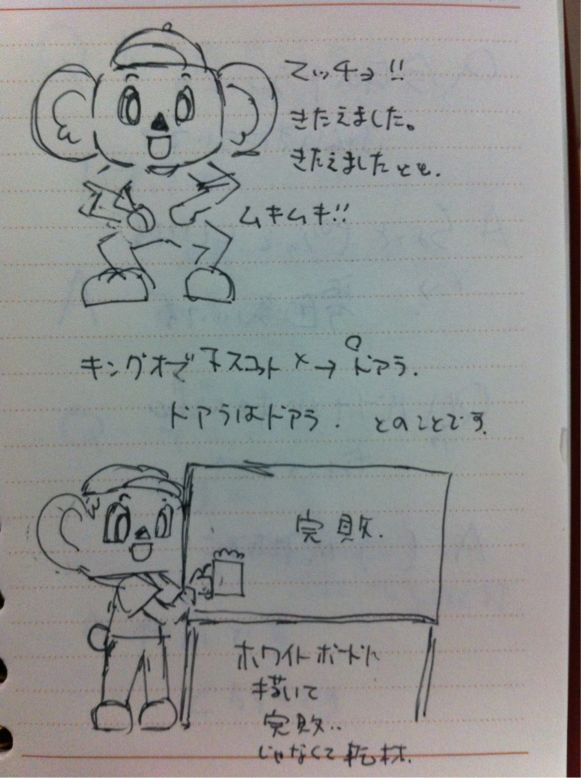 マッチョ!!
きたえました。
きたえましたとも.
ムキムキ!!
キングオブマスコット×→○ドアラ.
ドアラはドアラ. とのことです.
完敗.
ホワイトボードに
描いて
完敗..
じゃなくて乾杯.